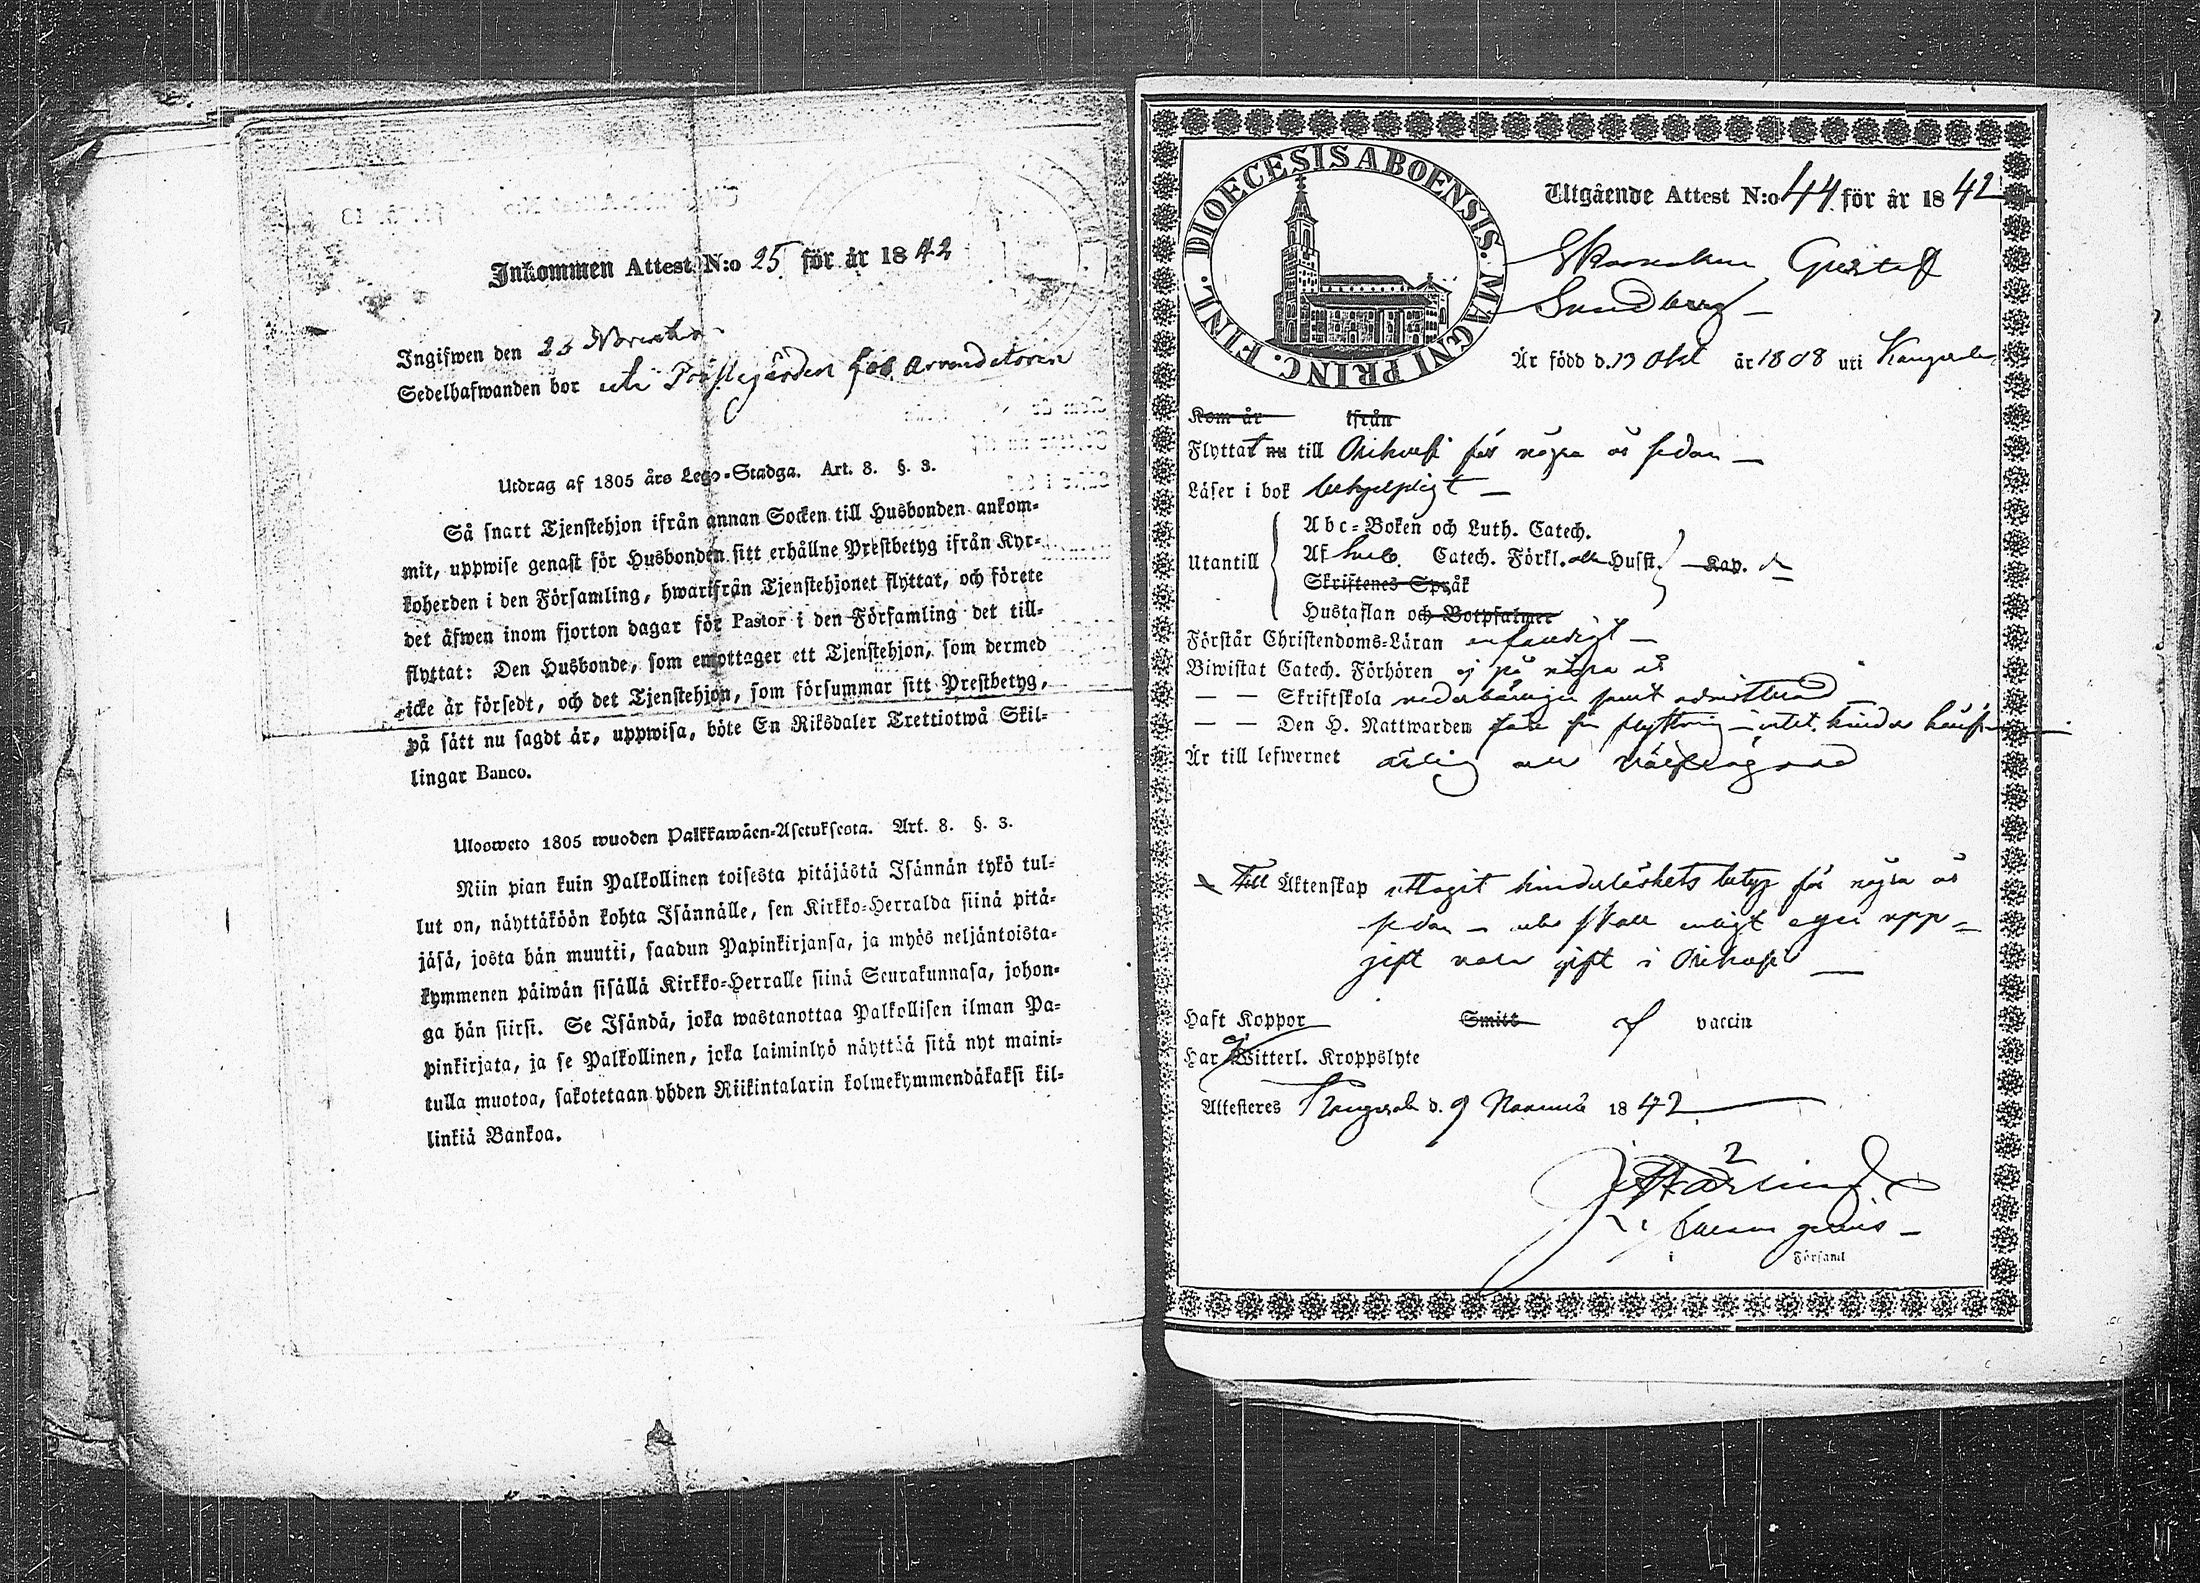 Inkommen Attest N:o 25 för år 1842
Ingifwen den 23 November
Sedelhafwanden bor uti Prästegården hos Arrendatorn
Utdrag af 1805 års Lego-Stadga. Art. 8. §. 3.
Så snart Tjenstehjon ifrån annan Socken till Husbonden ankom-
mit, uppwise genast för Husbonden sitt erhållne Prestbetyg ifrån Kyr-
koherden i den Församling, hwarifrån Tjenstehjonet flyttat, och förete
det äfwen inom fjorton dagar för Pastor i den Församling det till-
flyttat: Den Husbonde, som emottager ett Tjenstehjon, som dermed
icke är försedt, och det Tjenstehjon, som försummar sitt Prestbetyg,
på sätt nu sagdt är, uppwisa, böte En Riksdaler Trettiotwå Skil-
lingar Banco.
Ulosweto 1805 wuoden Palkkawäen-Asetuksesta. Art. 8. §. 3.
Niin pian kuin Palkollinen toisesta pitäjästä Isännän tykö tul-
lut on, näyttäköön kohta Isännälle, sen Kirkko-Herralda siinä pitä-
jäsä, josta hän muutti, saadun Papinkirjansa, ja myös neljäntoista-
kymmenen päiwän sisällä Kirkko-Herralle siinä Seurakunnasa, johon-
ga hän siirsi. Se Isändä, joka wastanottaa Palkollisen ilman Pa-
pinkirjata, ja se Palkollinen, joka laiminlyö näyttää sitä nyt maini-
tulla muotoa, sakotetaan yhden Riikintalarin kolmekymmendäkaksi kil-
linkiä Bankoa.
DIOECESIS ABOENSIS. MAGNI PRINC. FINL.
Utgående Attest N:o 44 för år 1842
Gustaf
Sundberg
Är född d. 13 Okt år 1808 uti Kangasala
Kom år ifrån
Flyttat nu till Orihvesi för några år sedan
Läser i bok behjelpligt
Abc-Boken och Luth. Catech.
Utantill Af Sveb. Catech. Förkl. och Husst. Kap.
Skriftenes Språk
Hustaflan och Botpsalmer
Förstår Christendoms-Läran enfaldigt
Biwistat Catech. Förhören ej på några år
— — Skriftskola vederbörligen samt admitterad
— — Den H. Nattwarden före sin flyttning
Är till lefwernet ärlig och välfrägdad
Till Äktenskap uttagit hinderlöshets betyg för några år
sedan — skall enligt egen upp-
gift vara gift i Orihvesi
Haft Koppor Smitt af vaccin
Har Witterl. Kroppslyte
Attesteres Kangasala d. 9 November 1842
i Församl